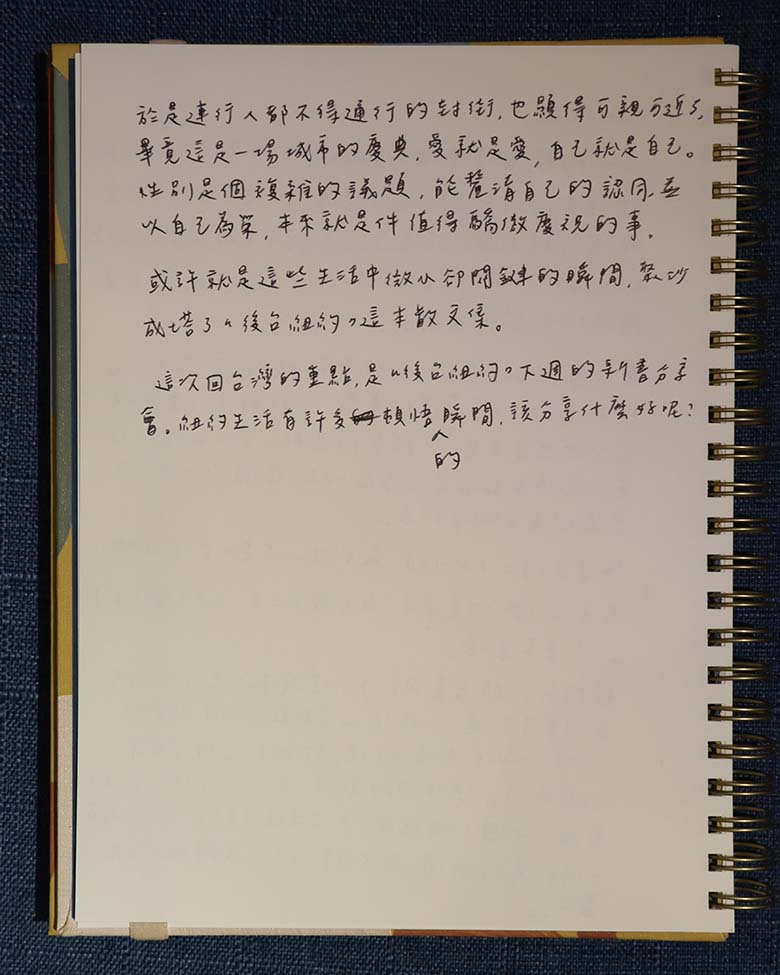 於是連行人都不得通行的封街，也顯得可親可近了，
畢竟這是一場城市的慶典，愛就是愛，自己就是自己。
性別是個複雜的議題，能釐清自己的認同並
以自己為榮，本來就是件值得驕傲慶祝的事。
或許就是這些生活中微小卻關鍵的瞬間，聚沙
成塔了“後台紐約”這本散文集。
這次回台灣的重點，是“後台紐約”下週的新書分享
會。紐約生活有許多頓悟的瞬間，該分享什麼好呢？